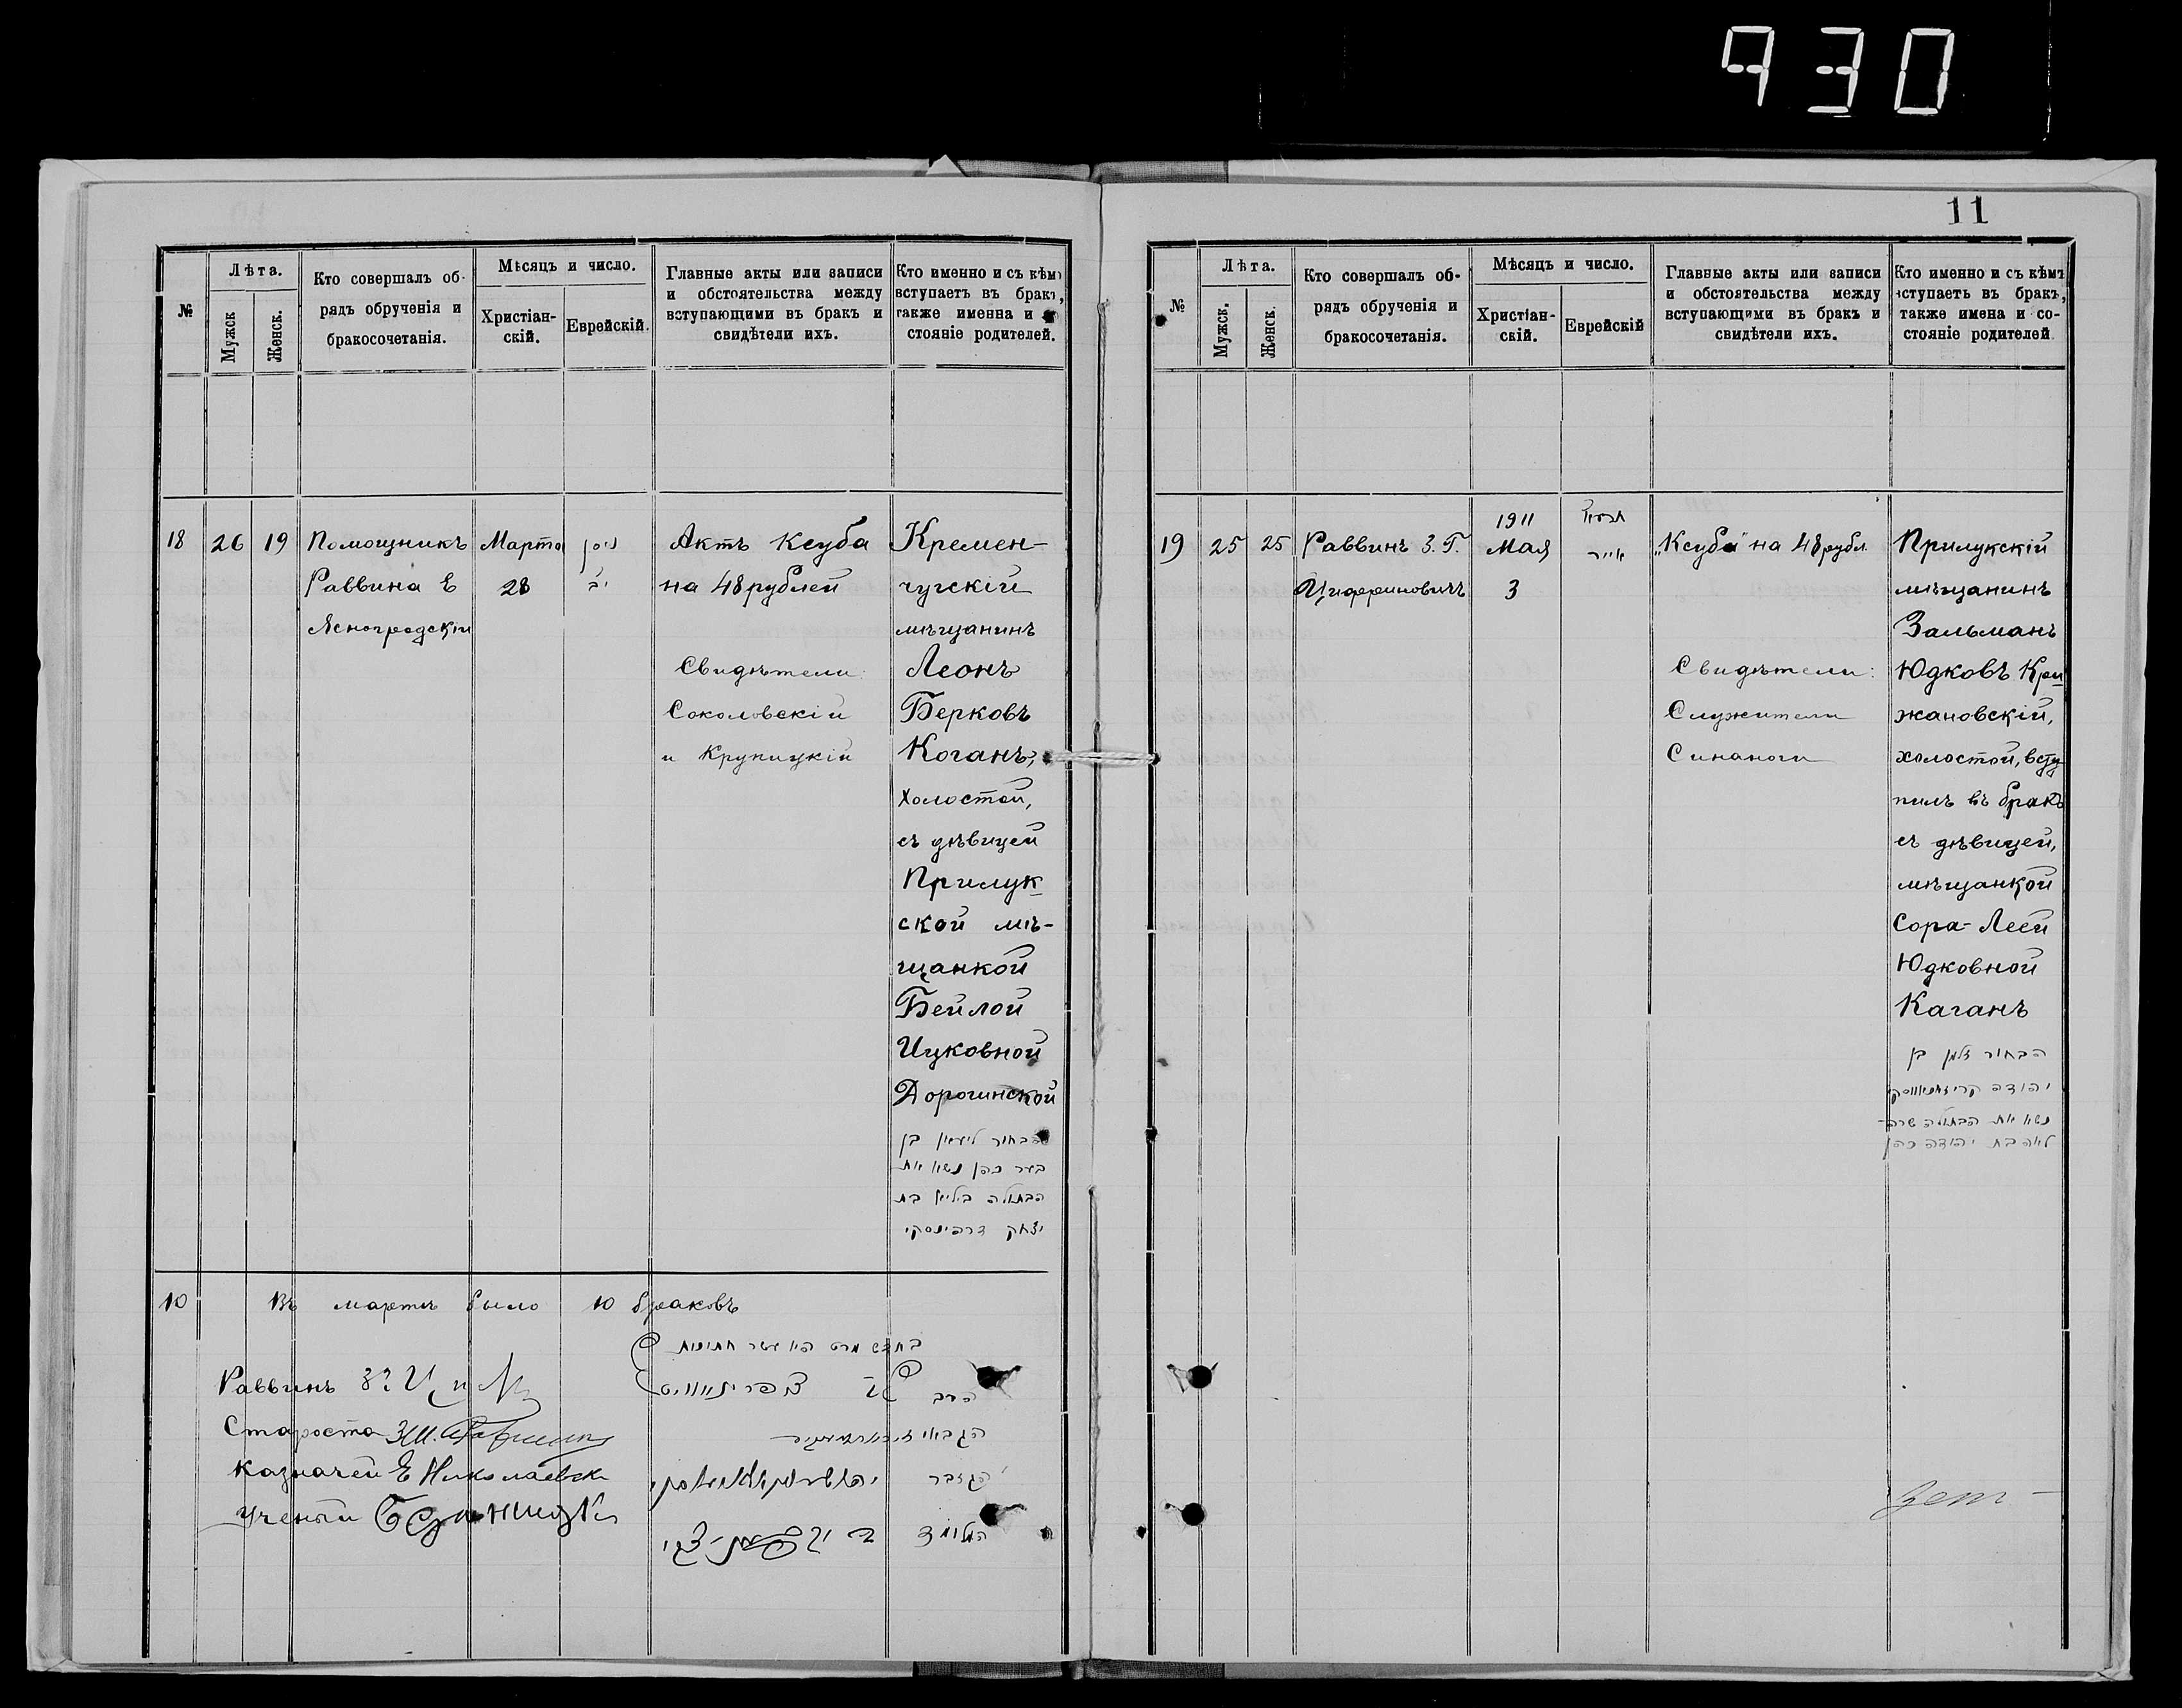 930
№
Лѣта.
Мужск
Женск.
Кто совершалъ об-
рядъ обрученія и
бракосочетанія.
Мѣсяцъ и число.
Христіан-
скій.
Еврейскій.
Главные акты или записи
и обстоятельства между
вступающими въ бракъ и
свидѣтели ихъ.
Кто именно и съ кѣмъ
вступаетъ въ бракъ,
также именна и
стояніе родителей.
18
26
19
Помощникъ
Раввина Е
Ясногродскій
Марта
28
ניסן
Актъ Ксуба
на 48 рублей
Свидѣтели:
Соколовскій
и Крупицкій
Кремен-
чугскій
мѣщанинъ
Леонъ
Берковъ
Коганъ,
холостой,
съ дѣвицей
Прилук-
ской мѣ-
щанкой
Бейлой
Ицковной
Дорогинской
הבחור ליאון בן
בער כהן נשא את
הבתולה ביילא בת
יצחק
10 Въ мартѣ было 10 браковъ
בחדש מרט היו עשר חתונות
Раввинъ
הרב
Староста
הגבאי
Казначей Е Николаевск
הגזבר
Ученый
המלומד
11
№
Лѣта.
Мужск.
Женск.
Кто совершалъ об-
рядъ обрученія и
бракосочетанія.
Мѣсяцъ и число.
Христіан-
скій.
Еврейскій
Главные акты или записи
и обстоятельства между
вступающими въ бракъ и
свидѣтели ихъ.
Кто именно и съ кѣмъ
вступаетъ въ бракъ,
также имена и со-
стояніе родителей
19
25
25
Раввинъ З. Г.
Цифериновичъ
1911
Мая
3
אייר
„Ксуба" на 48 рубл.
Свидѣтели:
Служители
Синагоги
Прилукскій
мѣщанинъ
Зальманъ
Юдковъ Кри-
жановскій,
холостой, всту-
пилъ въ бракъ
съ дѣвицей,
мѣщанкой
Сора-Леей
Юдковной
Каганъ
הבחור זלמן בן
יהודה קריזאנאווסקי
נשא את הבתולה שרה-
לאה בת יהודה כהן